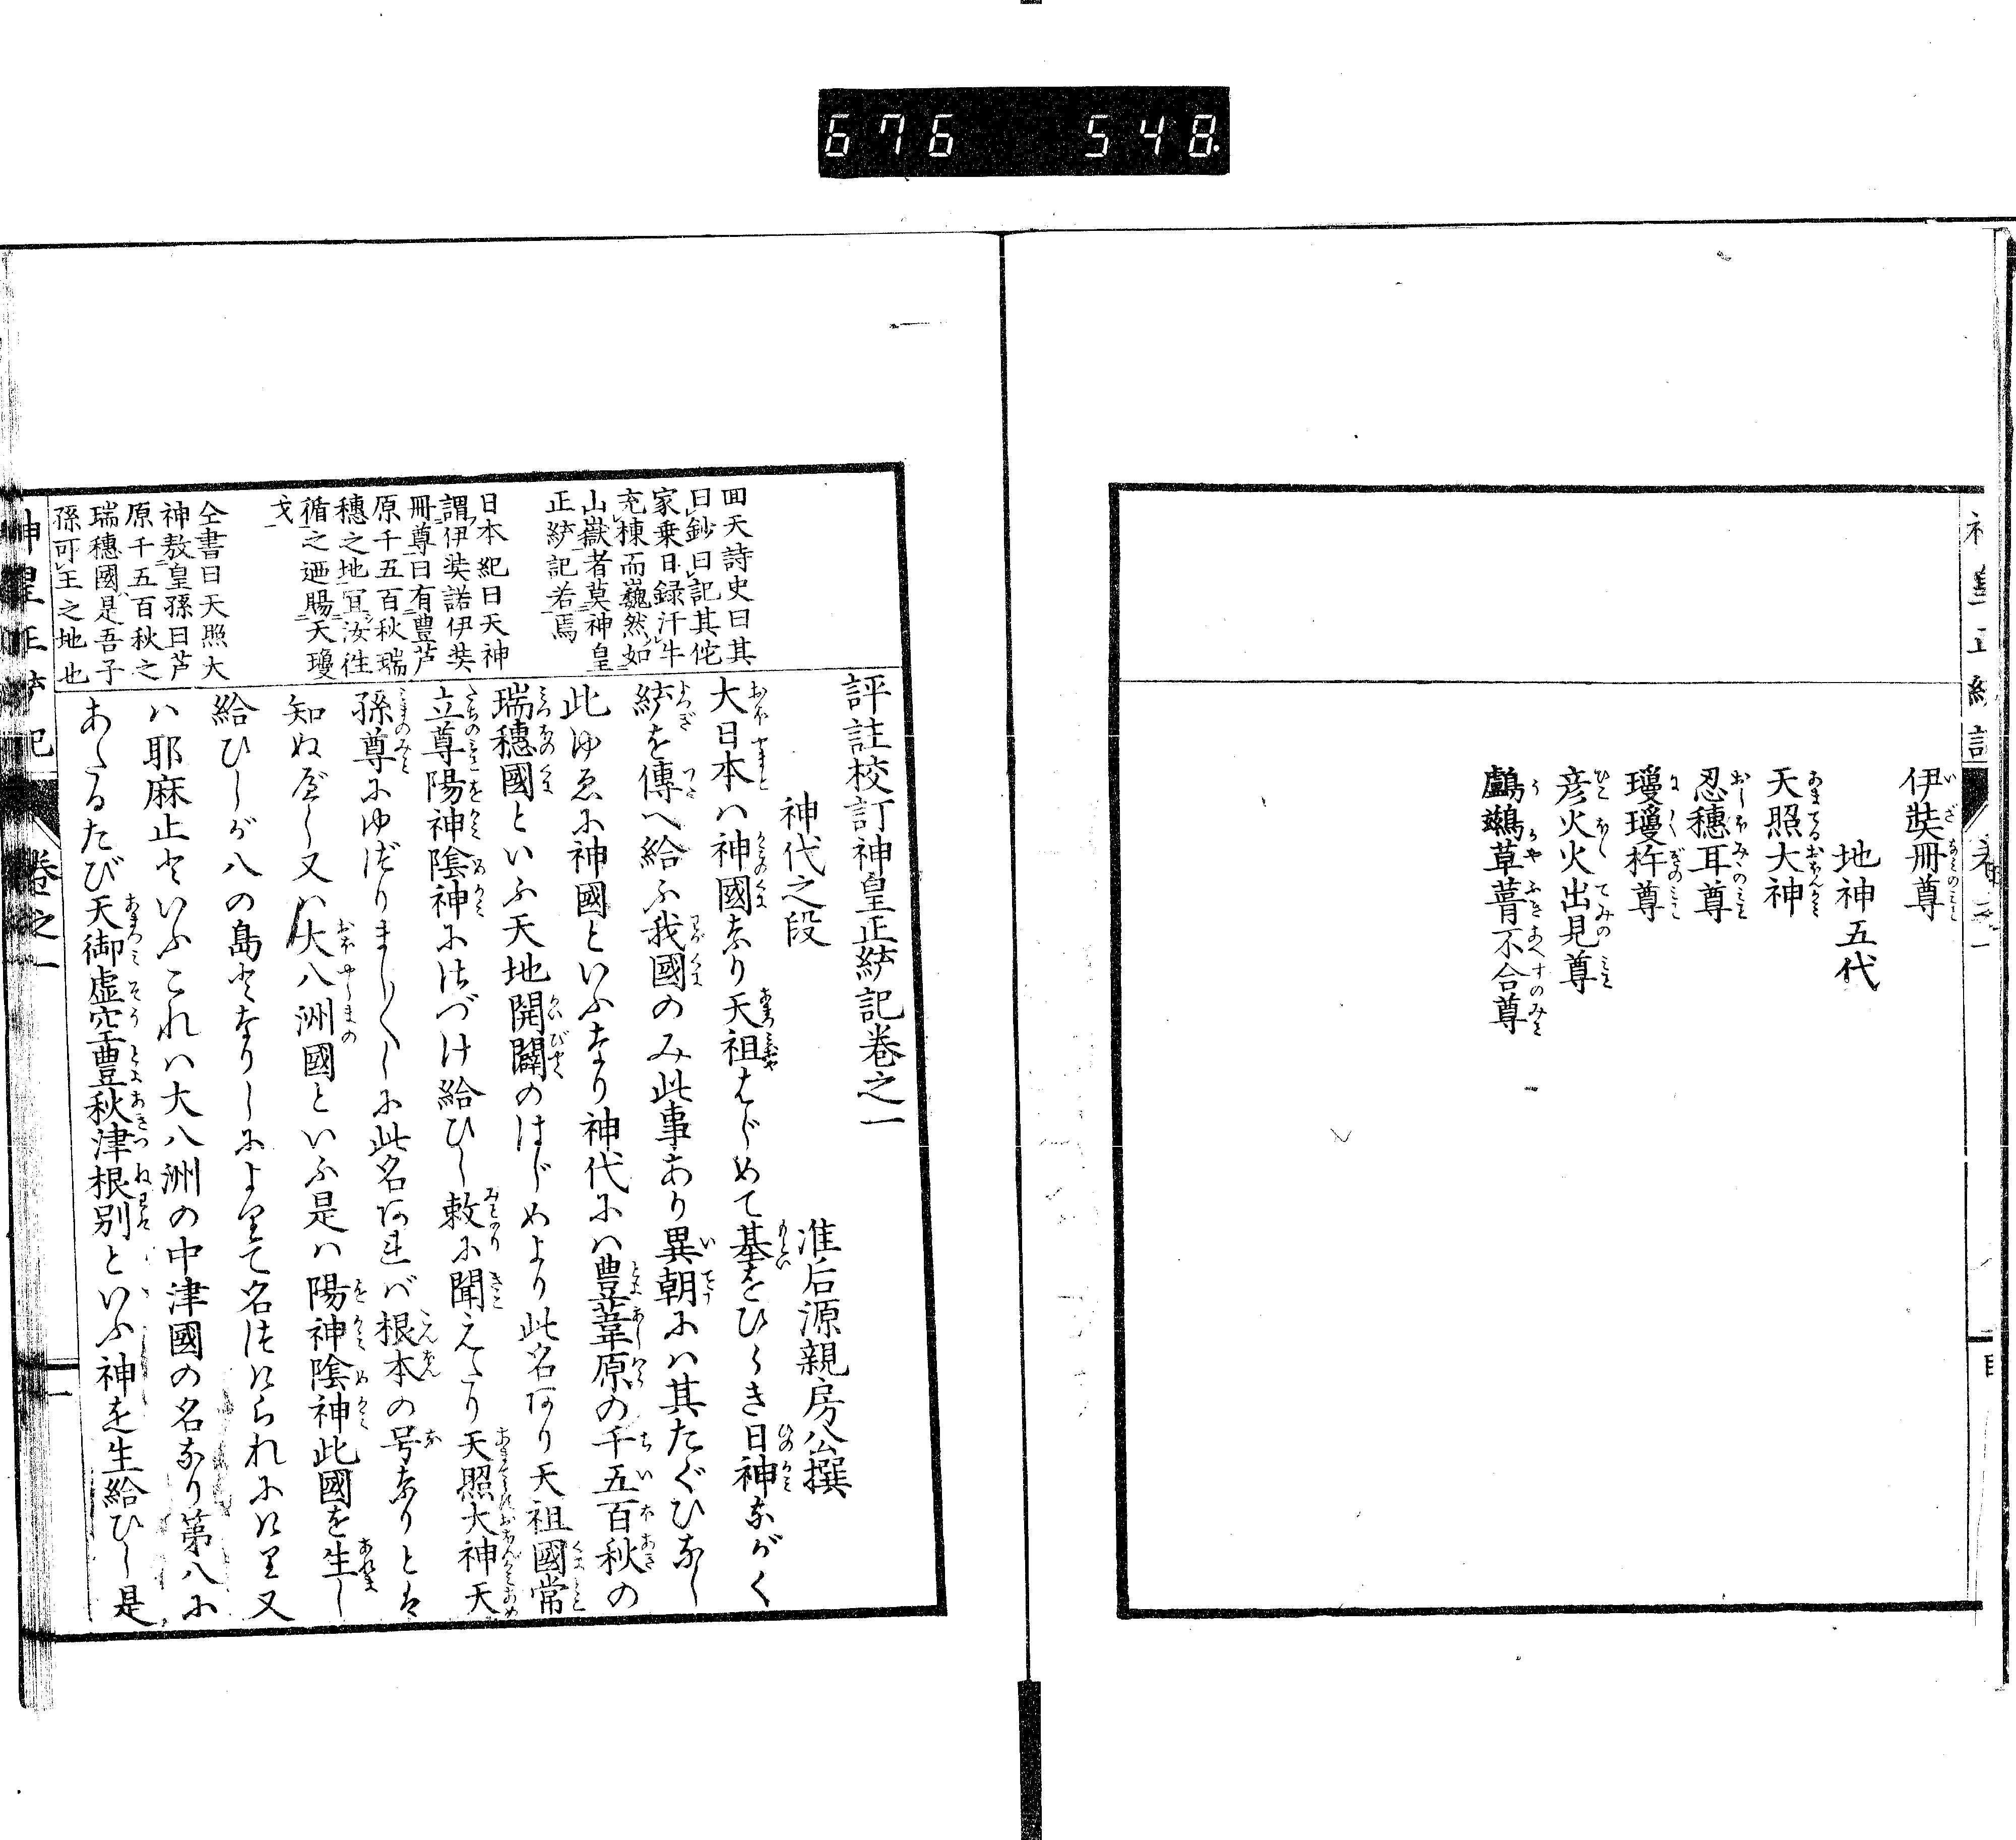 676 548
伊弉冊尊
地神五代
天照大神
忍穗耳尊
瓊瓊杵尊
彦火火出見尊
鸕鷀草葺不合尊
評註校訂神皇正統記巻之一
准后源親房公撰
神代之段
大日本ハ神國なり天祖はじめて基をひらき日神ながく
統を傳へ給ふ我國のみ此事あり異朝にハ其たぐひなし
此ゆゑに神國といふなり神代にハ豊葦原の千五百秋の
瑞穗國といふ天地開闢のはじめより此名あり天祖國常
立尊陽神陰神にさづけ給ひし敕に聞えたり天照大神天
孫尊にゆづりましましゝに此名あれバ根本の号なりとは
知ぬべし又ハ大八洲國といふ是ハ陽神陰神此國を生し
給ひしが八の島となりしによりて名づけられにけり又
ハ耶麻止といふこれハ大八洲の中津國の名なり第八に
あたるたび天御虚空豊秋津根別といふ神を生給ひし是
回天詩史曰其
曰鈔曰記其佗
家乗日録汗牛
充棟而巍然如
山嶽者莫神皇
正統記若焉
日本紀曰天神
謂伊弉諾伊弉
冊尊曰有豊芦
原千五百秋瑞
穗之地宜汝徃
循之廼賜天瓊
戈
仝書曰天照大
神敖皇孫曰芦
原千五百秋之
瑞穗國是吾子
孫可王之地也
神皇正統記 巻之一 一